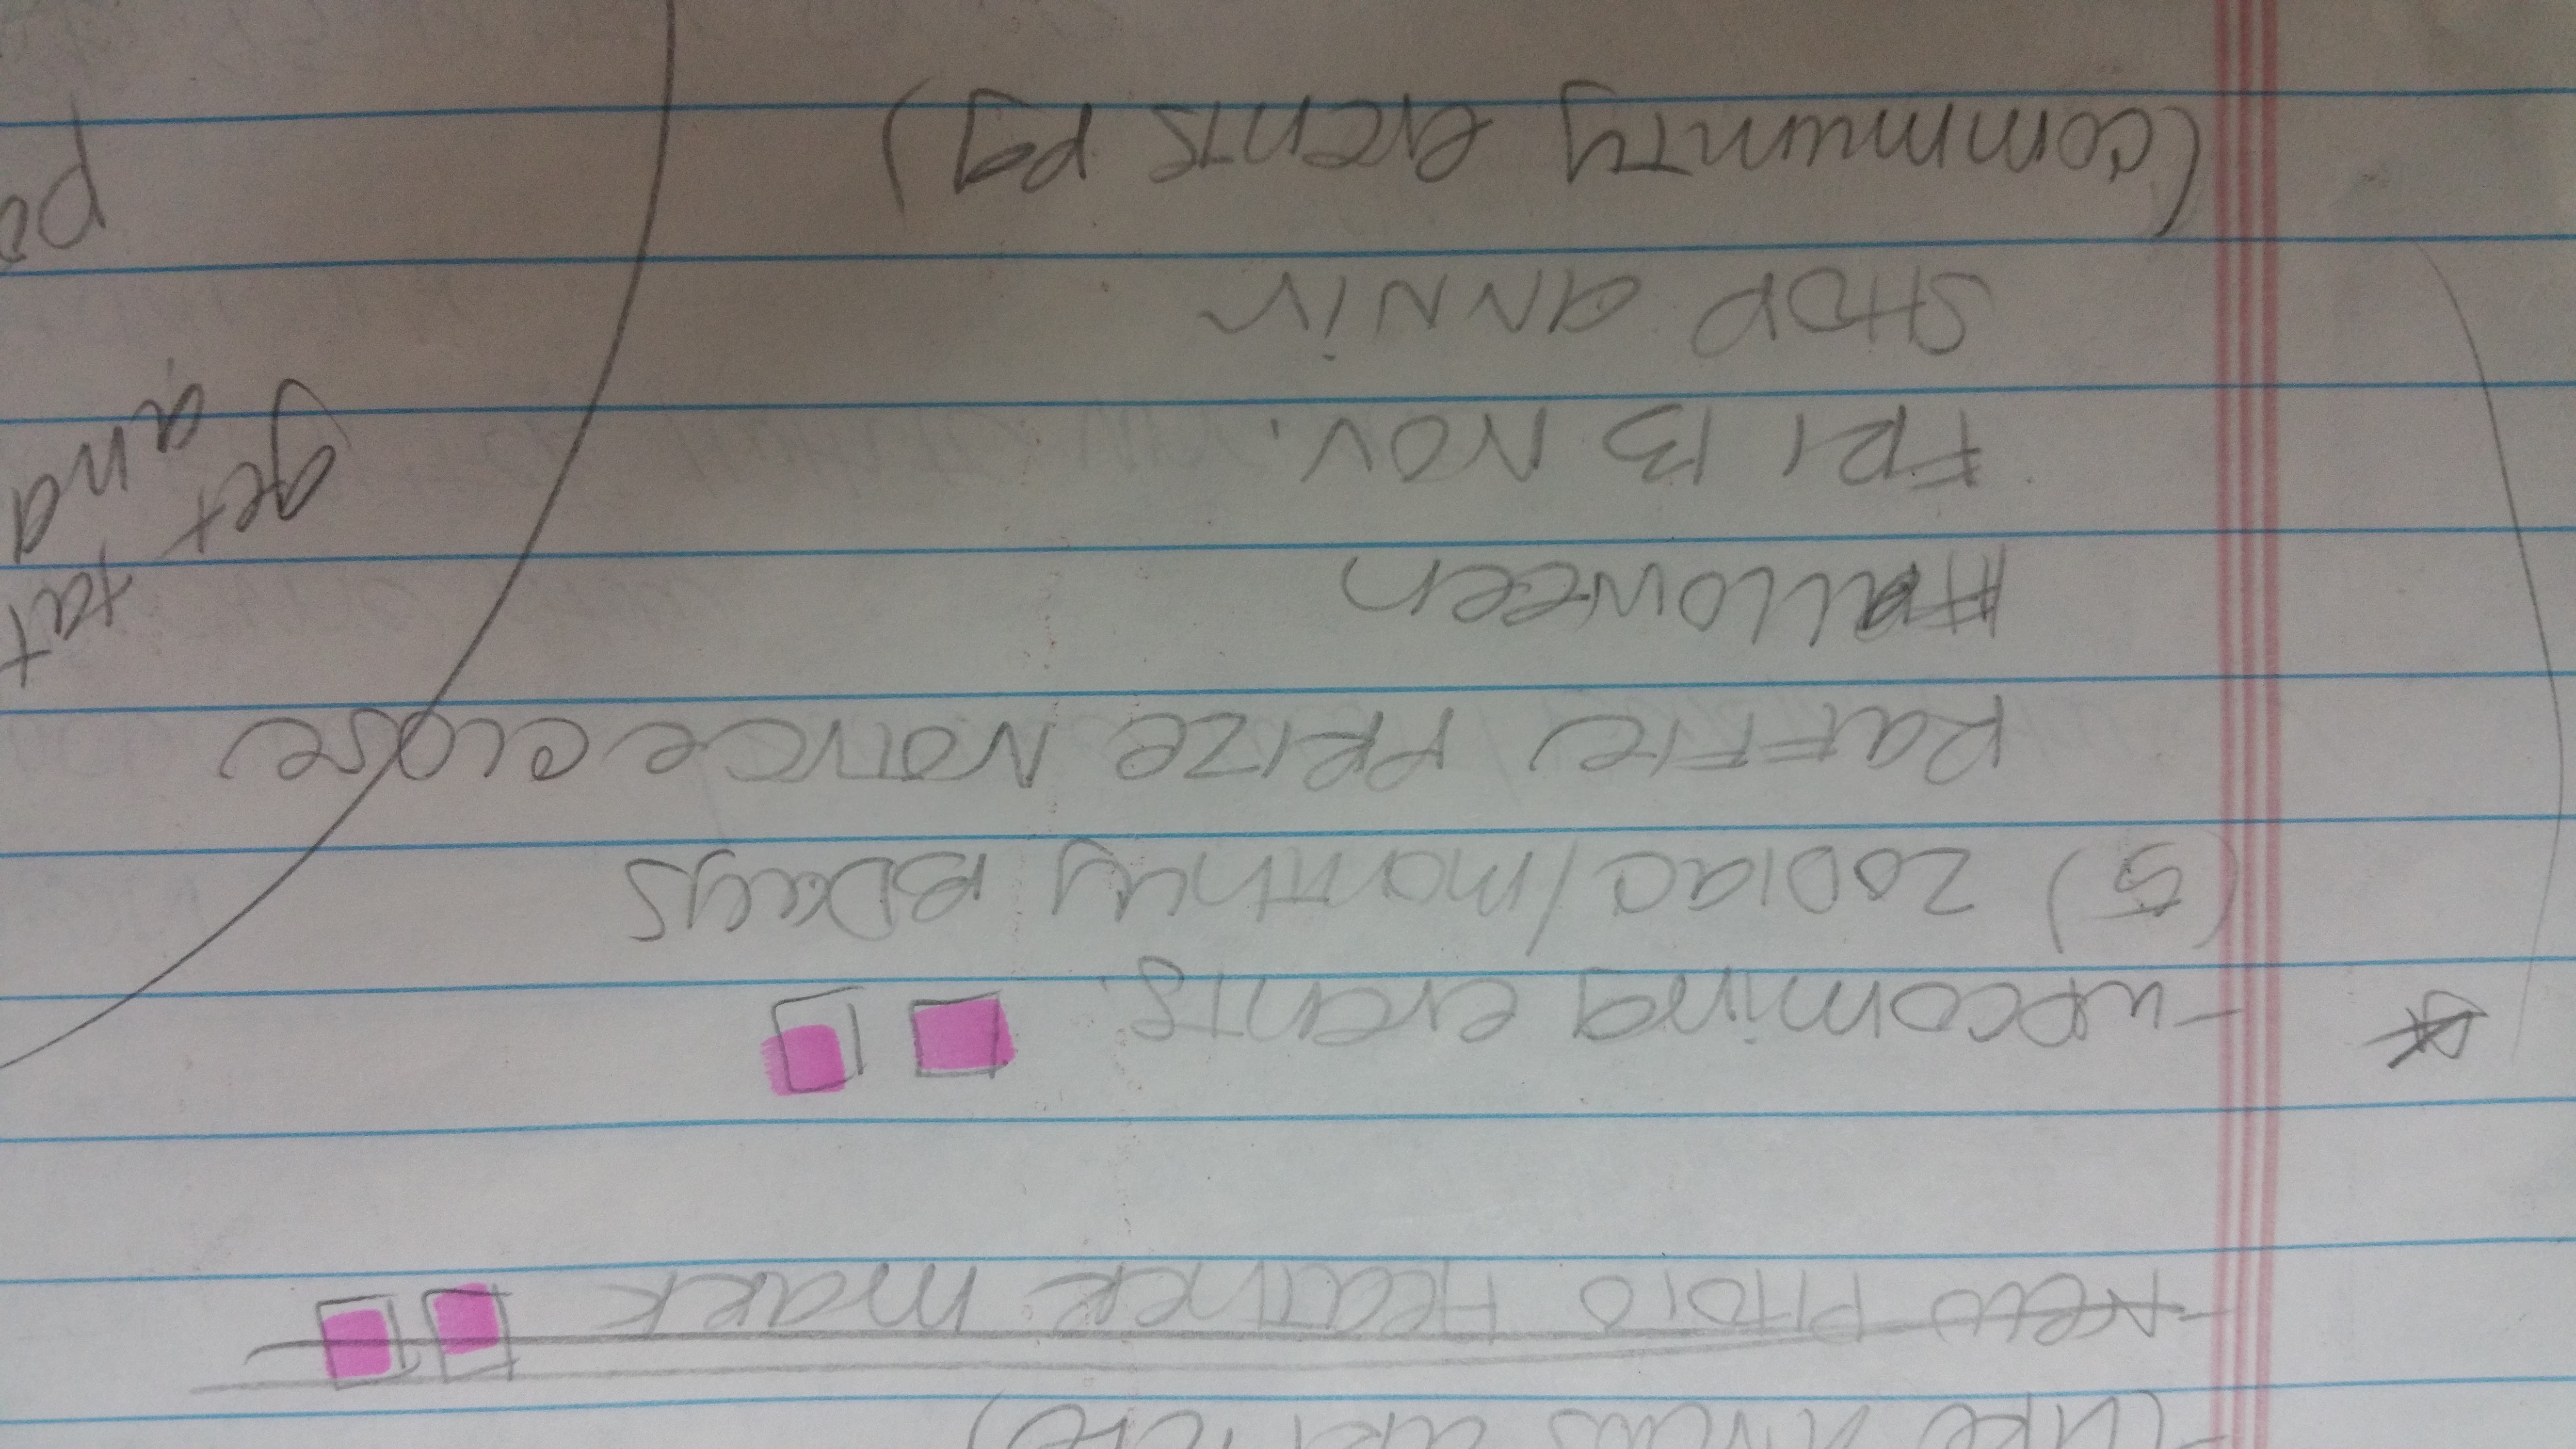 (like news article)
-New PHOTO HEATHER MARK
-upcoming events.
(5) ZODIAC/monthly BDAYS
RAFFLE PRIZE NOTICE close
Halloween
FRI 13 NOV.
SHOP ANNIV
(community events pg)
get tat
and
po